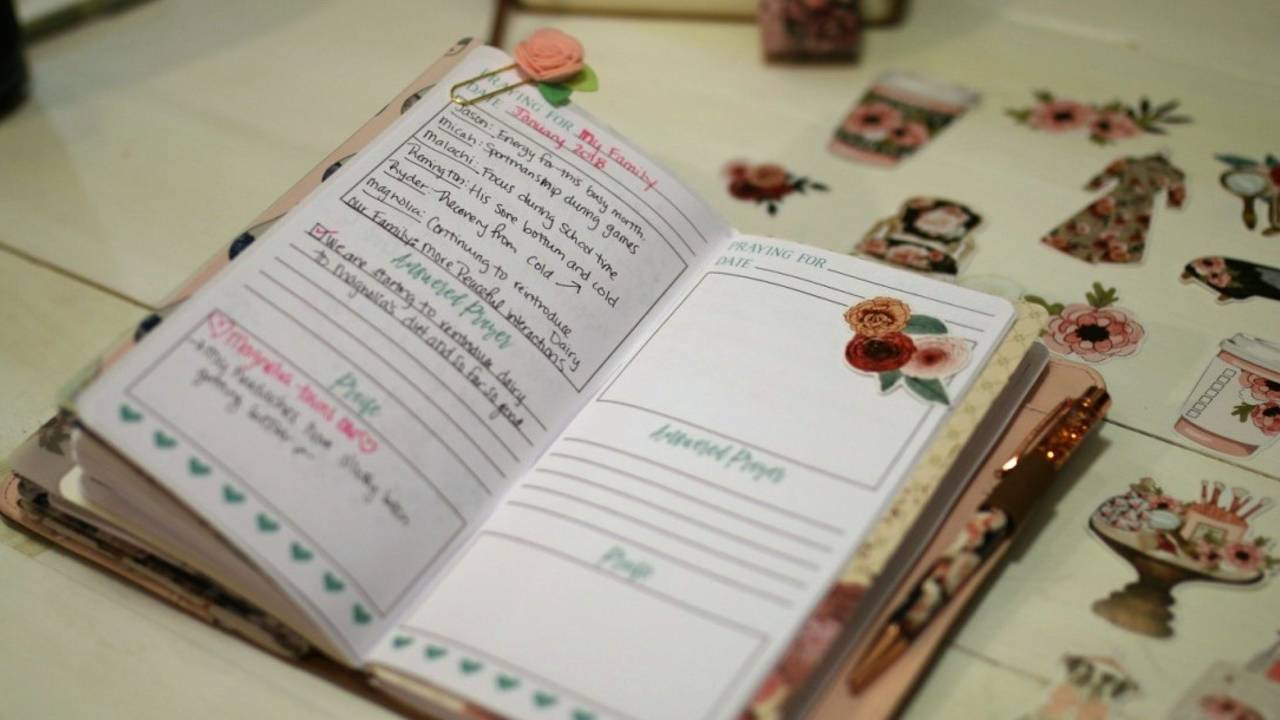 PRAYING FOR my Family
DATE January 2018
Jason: Energy for this busy month.
micah: Sportmanship during games
malachi: Focus during school time
Remington: His sore bottum and cold
Ryder: Recovery from cold →
magnolia: Continuing to reintroduce Dairy
our Family: more Peaceful interactions
Answered Prayer
We are starting to reintroduce dairy
to magnolia's diet and so far so good
Praise
Magnolia turns one
my headaches have slowly been
getting better
PRAYING FOR
DATE
Answered Prayer
Praise